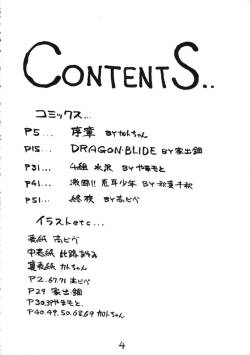 CONTENTS..
コミックス...
P5... 序章 BYかトちゃん
P15... DRAGON・BLIDE BY家出鋼
P31... 4組 水泉 BYやまもと
P41... 激闘!! 忍耳少年 BY秋葉千秋
P51... 終夜 BY志ピグ
イラストetc...
表紙 志ピグ
中表紙
裏表紙 かトちゃん
P2.67.71 志ピグ
P29 家出鋼
P30.39やまもと.
P40.49.50.68.69 かトちゃん
4